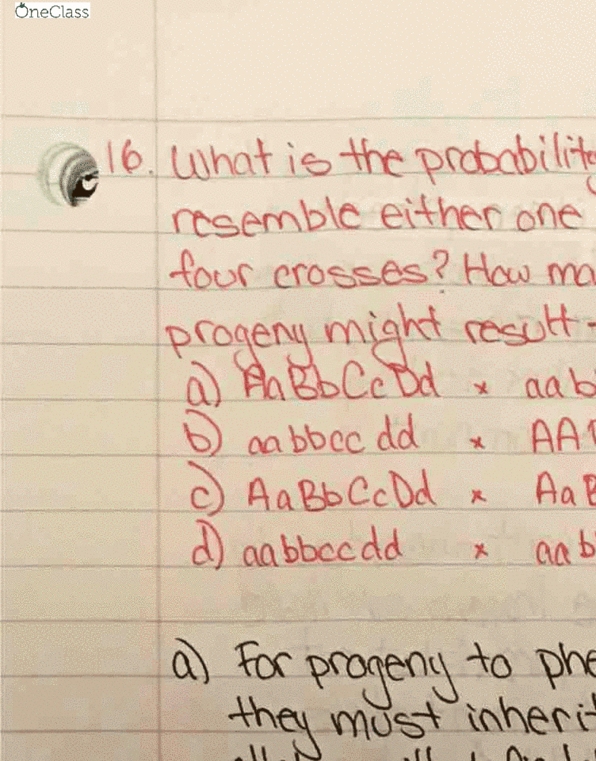 OneClass
16. What is the probability
resemble either one
four crosses? How ma
progeny might result
a) AaBbCcDd x aab
b) aabbcc dd x AA
c) AaBbCcDd x AaB
d) aabbccdd x aab
a) For progeny to phe
they must inherit